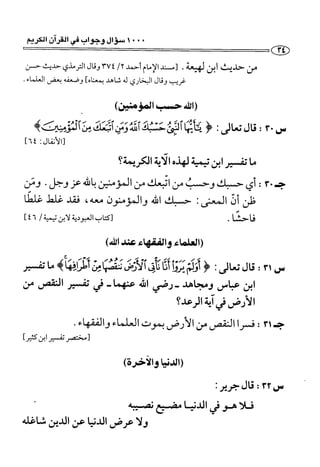 ١٠٠٠ سؤال وجواب في القرآن الكريم
٣٤
من حديث ابن لهيعة. [مسند الإمام أحمد ٣٧٤/٢ وقال الترمذي حديث حسن
غريب وقال البخاري له شاهد بمعناه] وضعفه بعض العلماء.
(الله حسب المؤمنين)
س٣٠: قال تعالى: ﴿ يَٰٓأَيُّهَا ٱلنَّبِىُّ حَسْبُكَ ٱللَّهُ وَمَنِ ٱتَّبَعَكَ مِنَ ٱلْمُؤْمِنِينَ ﴾
[الأنفال: ٦٤]
ما تفسير ابن تيمية لهذه الآية الكريمة؟
جـ٣٠: أي حسبك وحسبُ من اتبعك من المؤمنين بالله عز وجل. ومَن
ظن أنّ المعنى: حسبك الله والمؤمنون معه، فقد غلط غلطًا
فاحشًا. [كتاب العبودية لابن تيمية / ٤٦]
(العلماء والفقهاء عند الله)
س٣١: قال تعالى: ﴿ أَوَلَمْ يَرَوْا أَنَّا نَأْتِى ٱلْأَرْضَ نَنقُصُهَا مِنْ أَطْرَافِهَا ﴾ ما تفسير
ابن عباس ومجاهد - رضي الله عنهما - في تفسير النقص من
الأرض في آية الرعد؟
جـ٣١: فسرا النقص من الأرض بموت العلماء والفقهاء.
[مختصر تفسير ابن كثير]
(الدنيا والآخرة)
س٣٢: قال جرير:
فلا هو في الدنيا مضيع نصيبه
ولا عرض الدنيا عن الدين شاغله